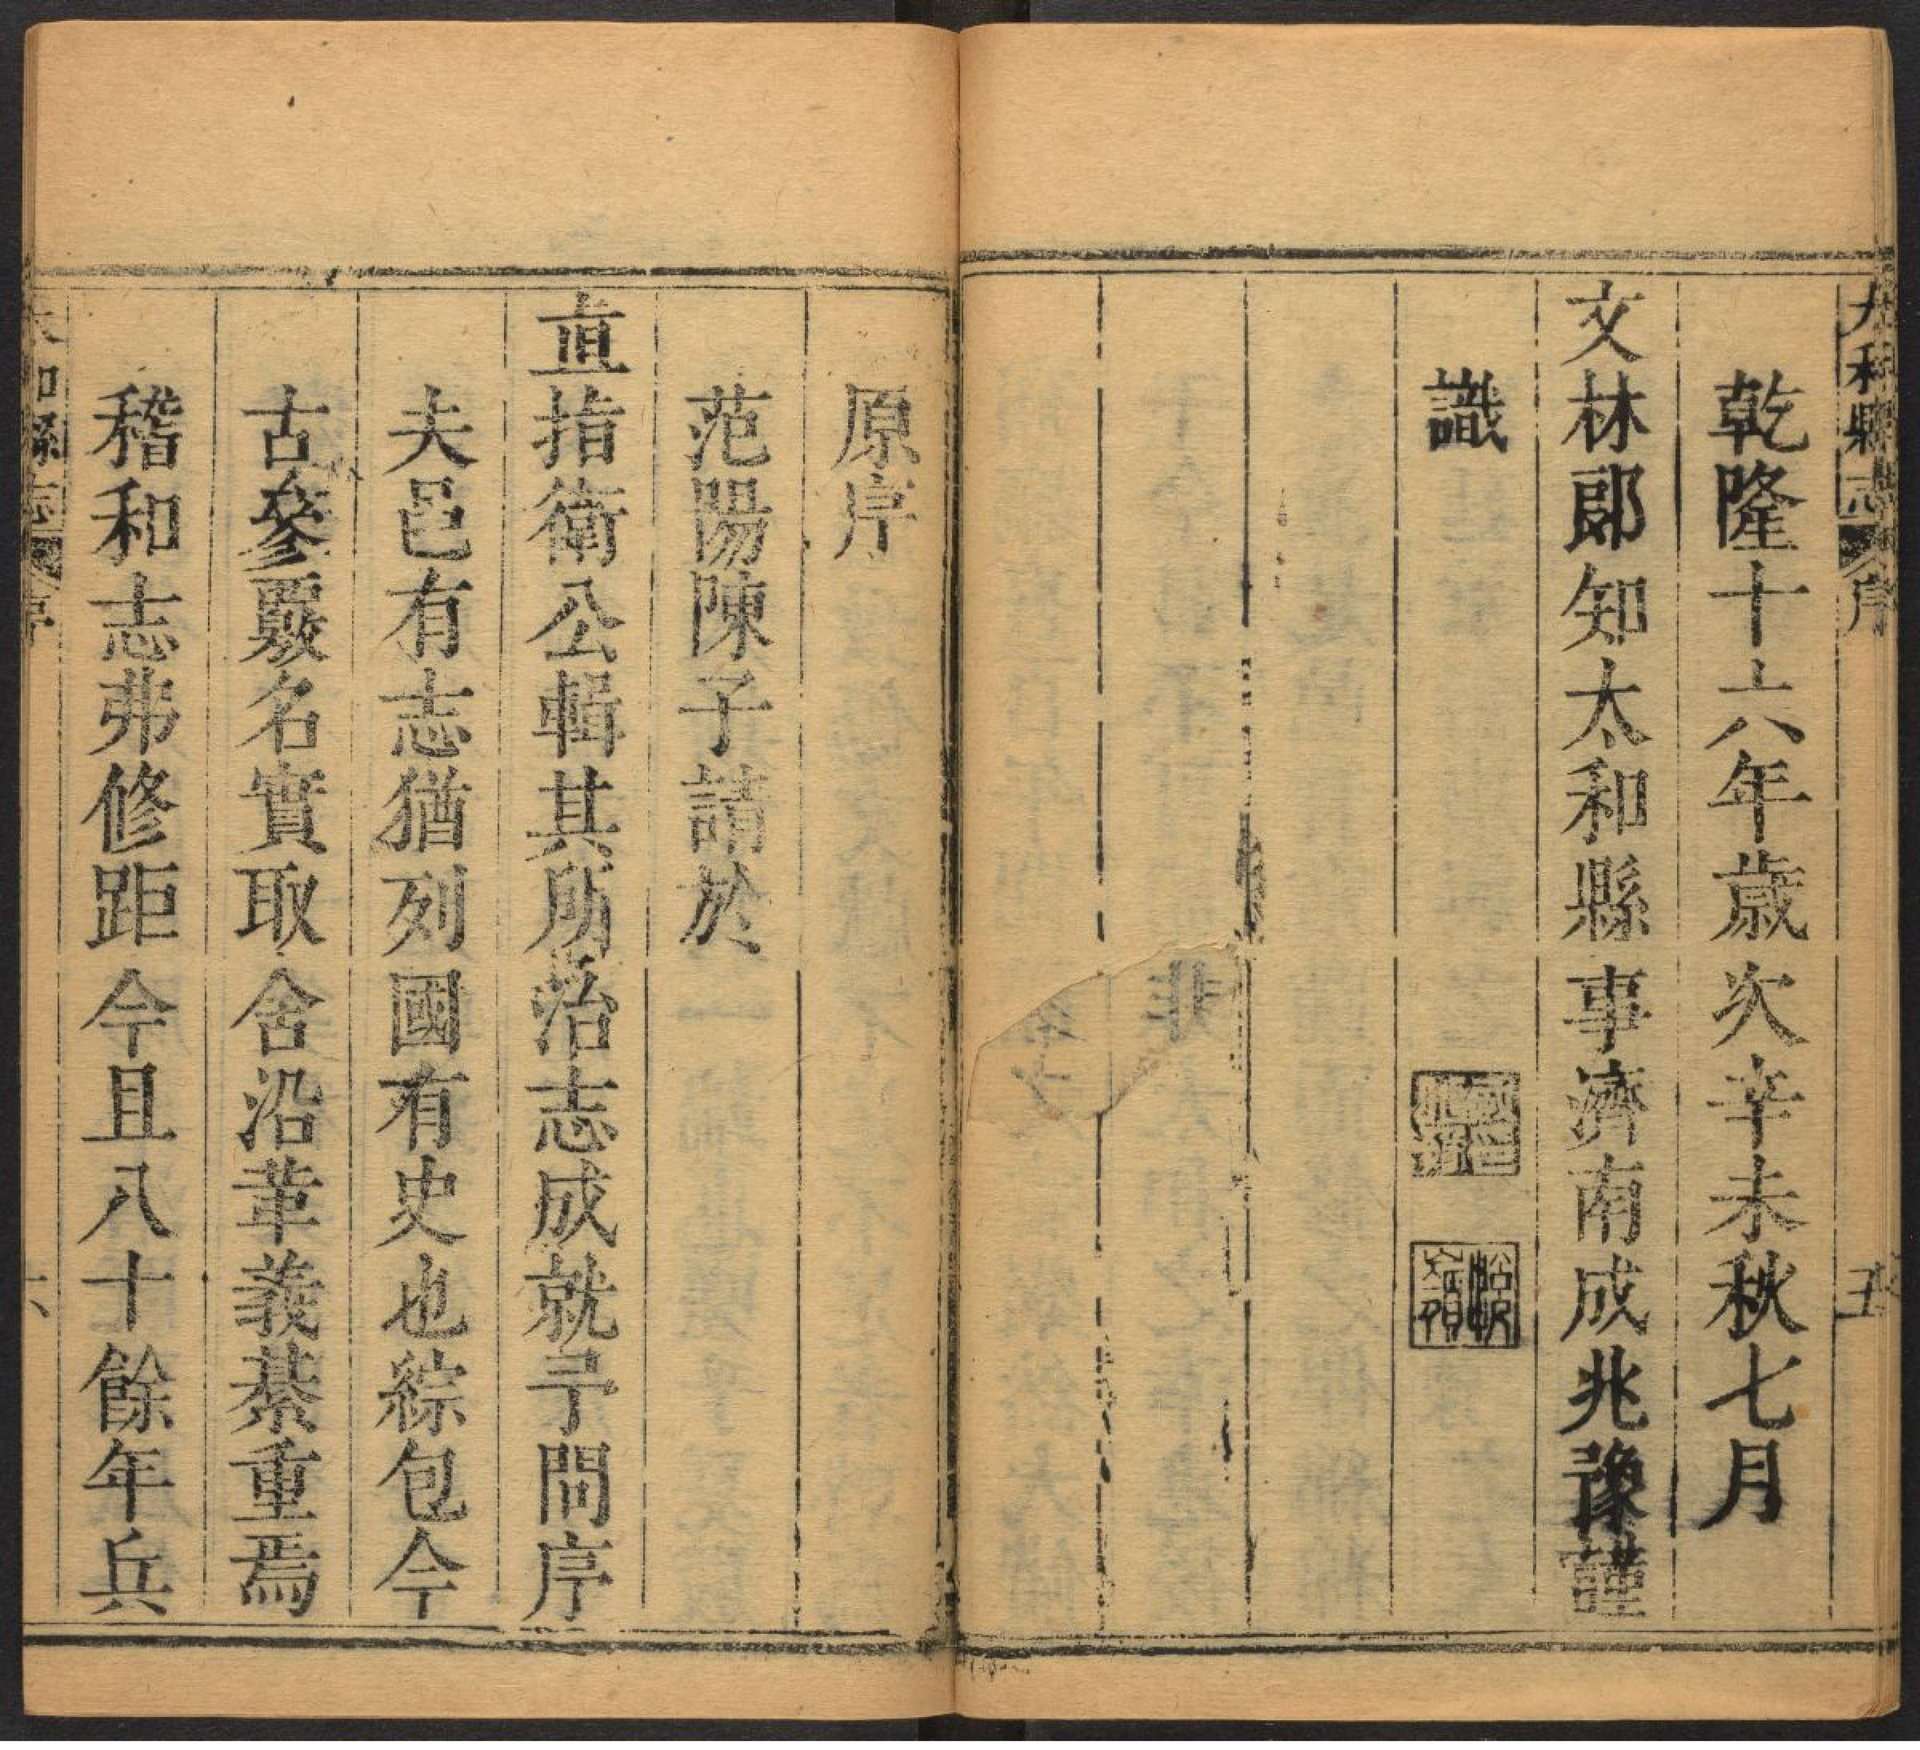 太和縣志 序 五
乾隆十六年歲次辛未秋七月
文林郎知太和縣事濟南成兆豫謹
識
原序
范陽陳子請於
直指衛公輯其所治志成就予問序
夫邑有志猶列國有史也綜包今
古參覈名實取舍沿革義綦重焉
稽和志弗修距今且八十餘年兵
太和縣志 序 六